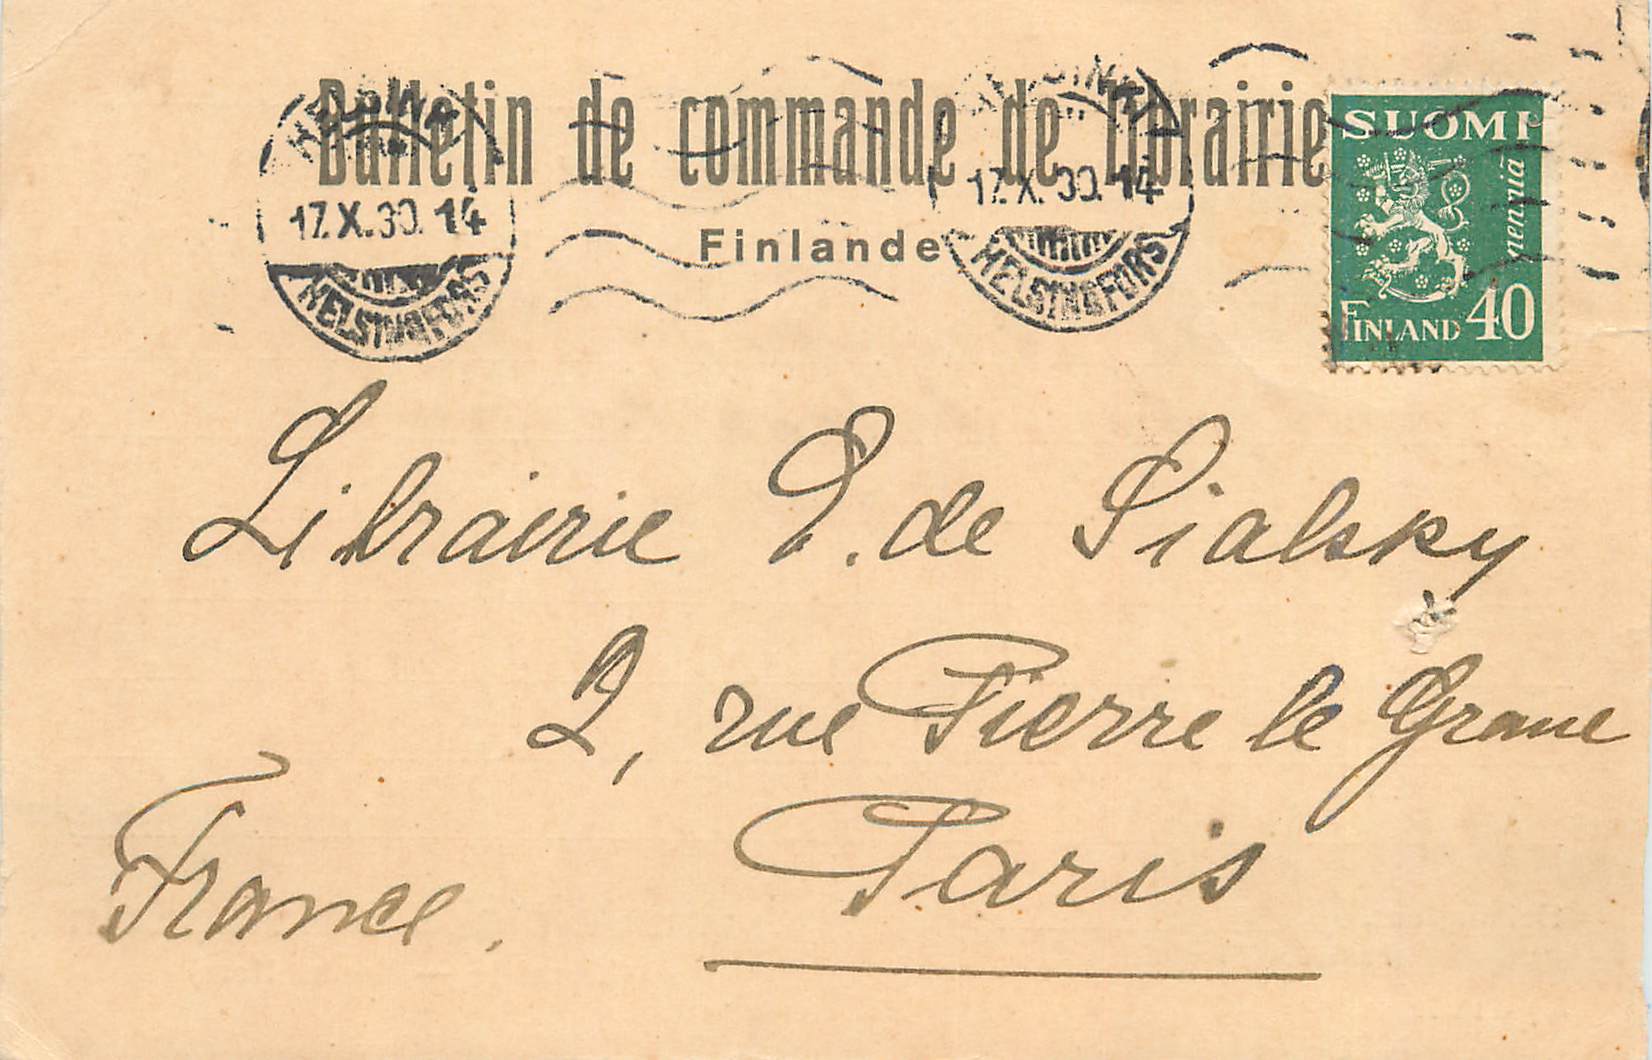 Bulletin de commande de librairie
Finlande
HELSINKI
17.X.30.14
HELSINGFORS
HELSINKI
17.X.30.14
HELSINGFORS
SUOMI
penniä
FINLAND 40
Librairie de Sialsky
2, rue Pierre le Grand
Paris
France.